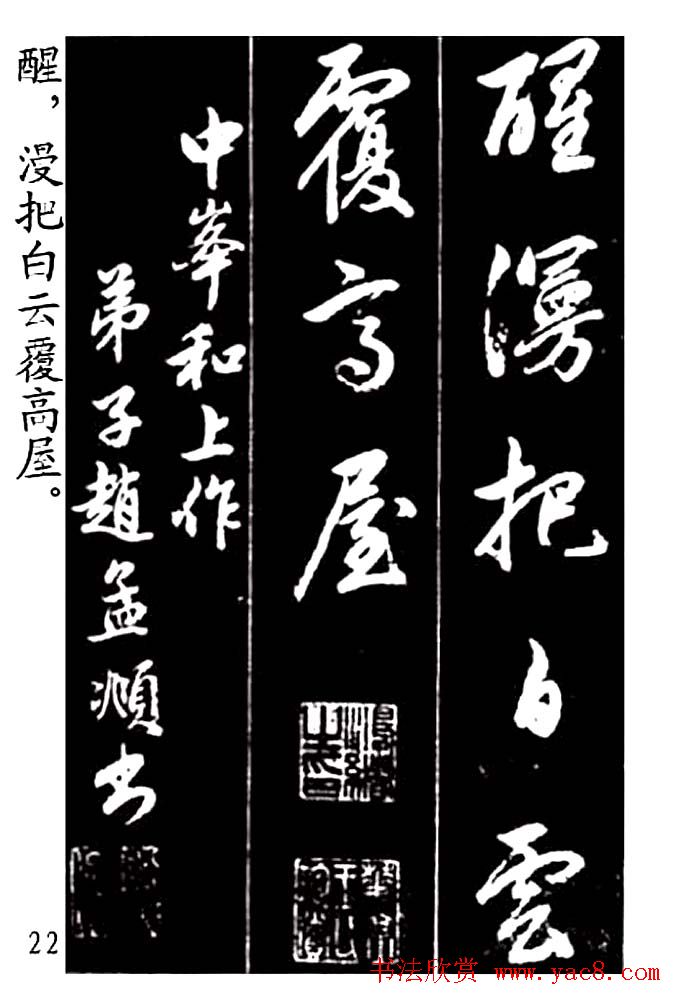 醒漫把白雲
覆高屋
中峯和上作
弟子趙孟頫書
醒，漫把白云覆高屋。
22
书法欣赏 www.yac8.com